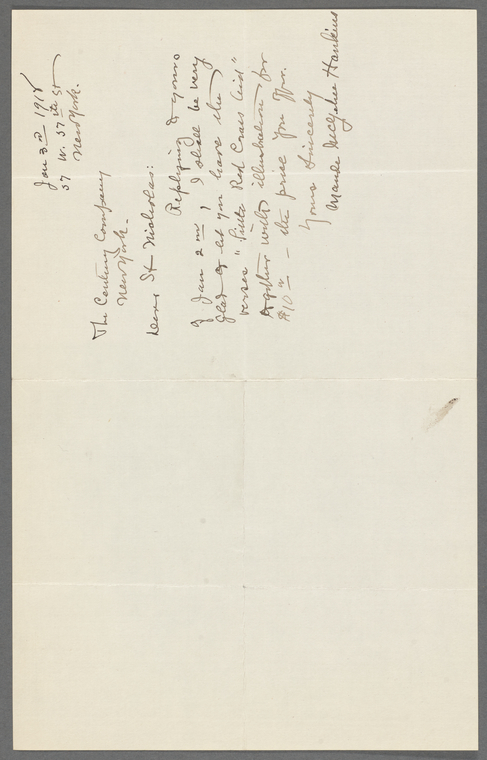 Jan 3rd 1918
57 W. 57th St
New York.
The Century Company
New York.
Dear St Nicholas:
Replying to yours
of Jan 2nd, I shall be very
glad to let you have the
verses "Little Red Cross Aid"
together with illustration for
$10.00 - the price you offer.
Yours Sincerely
Maude McGehee Hankins